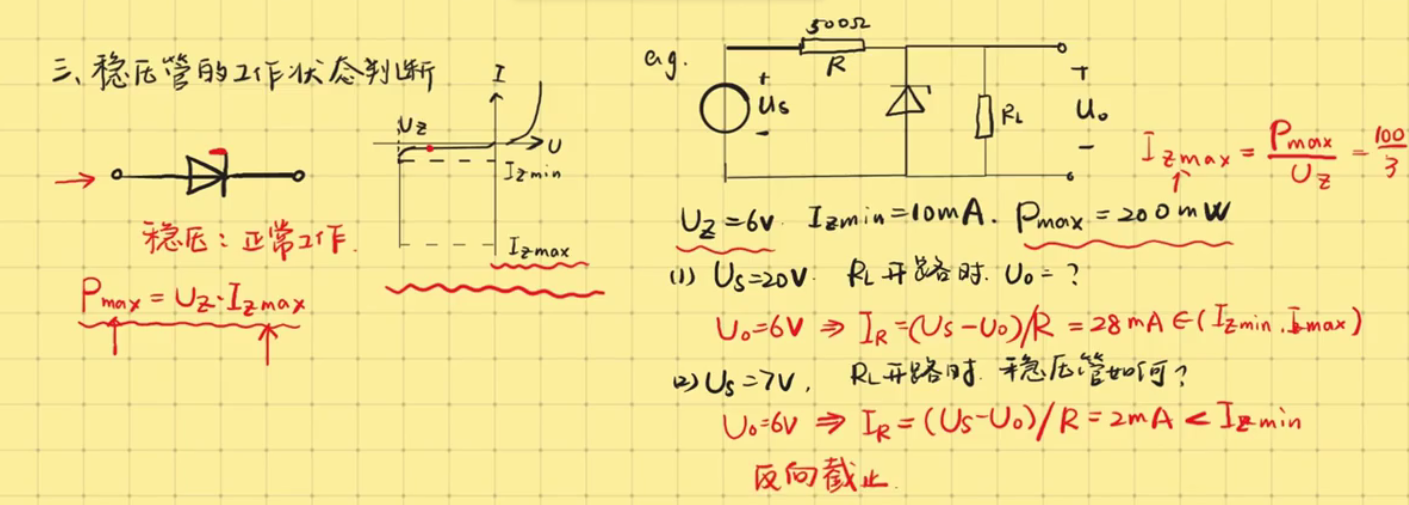 三、稳压管的工作状态判断
I
Uz
U
Izmin
Izmax
稳压：正常工作.
Pmax = Uz·Izmax
e.g.
500Ω
R
+
Us
-
RL
+
Uo
-
Izmax = Pmax/Uz = 100/3
Uz=6V. Izmin=10mA. Pmax=200mW
(1) Us=20V. RL开路时. Uo=?
Uo=6V ⇒ IR=(Us-Uo)/R=28mA∈(Izmin.Izmax)
(2) Us=7V, RL开路时. 稳压管如何?
Uo=6V ⇒ IR=(Us-Uo)/R=2mA<Izmin
反向截止.